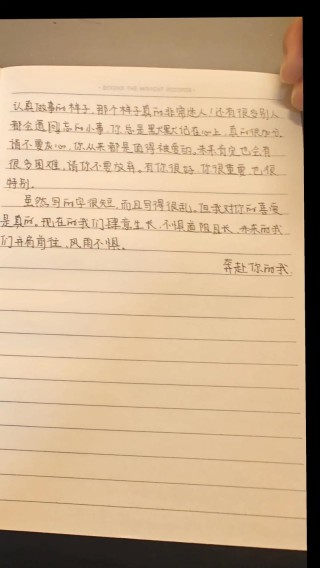 认真做事的样子,那个样子真的非常迷人!还有很多别人
都会遗忘的小事,你总是默默记在心上,真的很加分。
请不要灰心,你从来都是值得被爱的。未来肯定也会有
很多困难,请你不要放弃。有你很好,你很重要,也很
特别。
虽然写的字很短,而且写得很乱。但我对你的喜爱
是真的。现在的我们肆意生长,不惧道阻且长,未来的我
们并肩前往,风雨不惧。
奔赴你的我